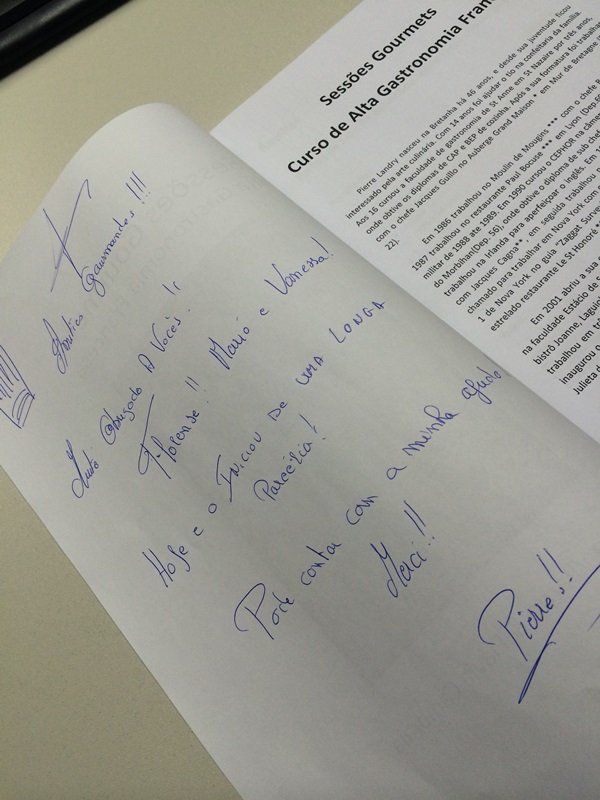 Gourmandes !!!
Muito Obrigado A Vocês !!
Florense !! Mario e Vanessa!
Hoje e o Iniciou de uma longa
Parceria!
Pode contar com a minha ajuda
Merci !!
Pierre !!
Sessões Gourmets
Curso de Alta Gastronomia Fran
Pierre Landry nasceu na Bretanha há 46 anos, e desde sua juventude ficou
interessado pela arte culinária. Com 14 anos foi ajudar o tio na confeitaria da família.
Aos 16 cursou a faculdade de gastronomia de St Anne em St Nazaire por três anos,
onde obteve os diplomas de CAP e BEP de cozinha. Após a sua formatura foi trabalhar
com o chefe Jacques Guillo no Auberge Grand Maison * em Mur de Bretagne
22).
Em 1986 trabalhou no Moulin de Mougins *** com o chefe
1987 trabalhou no restaurante Paul Bocuse *** em Lyon (Dep.
militar de 1988 ate 1989. Em 1990 cursou o CEPHOR na câm
do Morbihan(Dep. 56), onde obteve o diploma de sub chef
com Jacques Cagna**, em seguida trabalhou
trabalhou na Irlanda para aperfeiçoar o inglês. Em
chamado para trabalhar em Nova York com
1 de Nova York no guia "Zaggat Surve
estrelado restaurante Le St Honoré
Em 2001 abriu a sua
na faculdade Estácio de S
bistrô Joanne, Laguio
trabalhou em
inaugurou
Julieta d